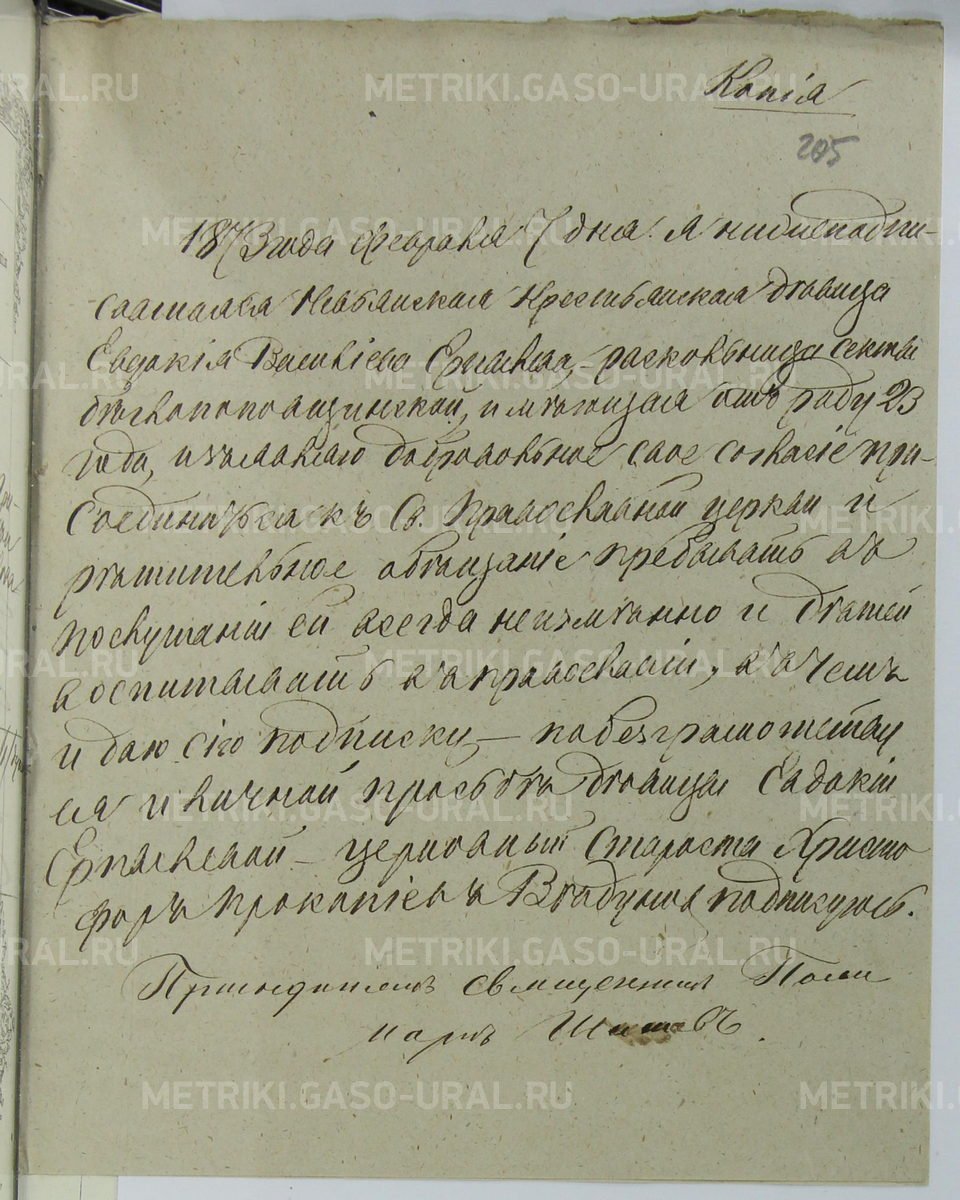 Копія
205
1873 года Февраля 7 дня. Я нижеподпи-
савшаяся Невьянская Крестьянская дѣвица
Евдокія Васильева, раскольница секты
бѣглопоповщинской, имѣющая отъ роду 23
года, изъявляю добровольное свое согласіе при-
соединиться къ Св. Православной церкви и
рѣшительное обѣщаніе пребывать въ
послушаніи ей всегда неизмѣнно и дѣтей
воспитывать въ православіи, въ чемъ
и даю сію подписку, – по безграмотству
ея и личной прозьбѣ дѣвицы Евдокіи
церковный Староста Христо
форъ Прокопіевъ подписуюсь.
Присоединялъ священникъ Поли
карпъ
METRIKI.GASO-URAL.RU